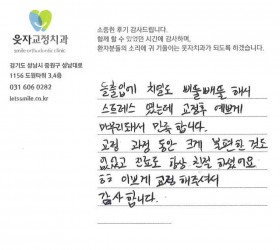 웃자교정치과
smile orthodontic clinic
경기도 성남시 중원구 성남대로
1156 도원타워 3,4층
031 606 0282
letssmile.co.kr
소중한 후기 감사드립니다.
함께 할 수 있었던 시간에 감사하며,
환자분들의 소리에 귀 기울이는 웃자치과가 되도록 하겠습니다.
돌출입에 치열도 삐뚤빼뚤 해서
스트레스 였는데 교정후 예쁘게
마무리돼서 만족 합니다.
교정 과정 동안 크게 불편한 것도
없었고 간호도 항상 친절 하셨어요
이쁘게 교정 해주셔서
감사 합니다.